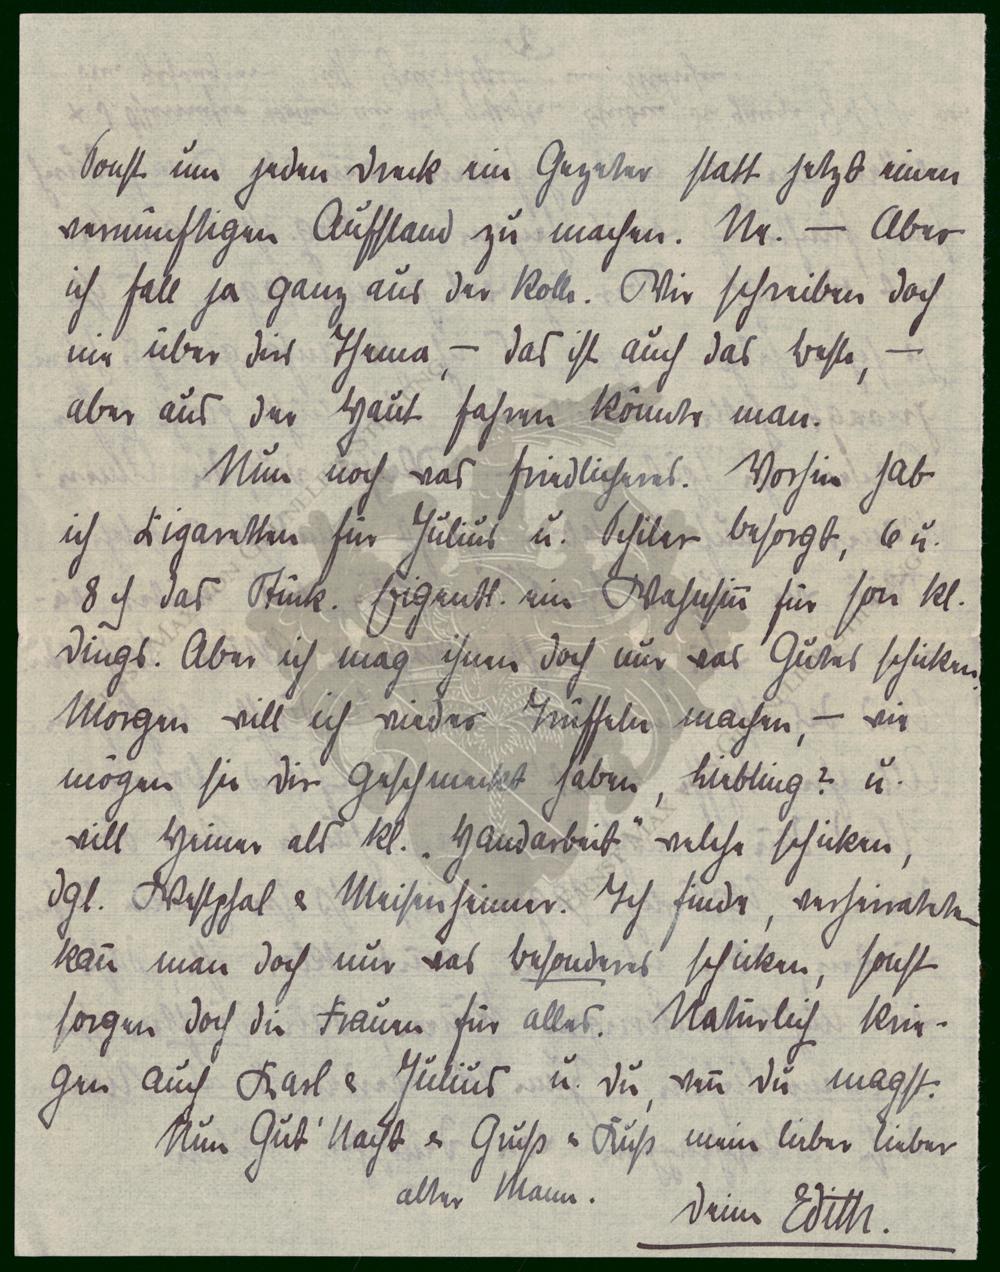 Sonst um jeden Dreck ein Gezeter statt jetzt einen
vernünftigen Aufstand zu machen. Na. — Aber
ich fall ja ganz aus der Rolle. Wir schreiben doch
nie über dies Thema, — das ist auch das beste, —
aber aus der Haut fahren könnte man.
Nun noch was friedlicheres. Vorhin hab
ich Zigaretten für Julius u. besorgt, 6 u.
8 ₰ das Stück. Eigentl. ein Wahnsin̄ für son kl.
Dings. Aber ich mag ihnen doch nur was Gutes schicken.
Morgen will ich wieder Trüffeln machen, — wie
mögen sie dir geschmeckt haben, Liebling? u.
will Heiner als kl. „Handarbeit" welche schicken,
dgl. Westphal & Meisenheimer. Ich finde, verheirateten
kan̄ man doch nur was besonderes schicken, sonst
sorgen doch die Frauen für alles. Natürlich krie-
gen auch Karl & Julius u. du, wen̄ du magst.
Nun Gut' Nacht & Gruß & Kuß mein lieber lieber
alter Mann.
Deine Edith.